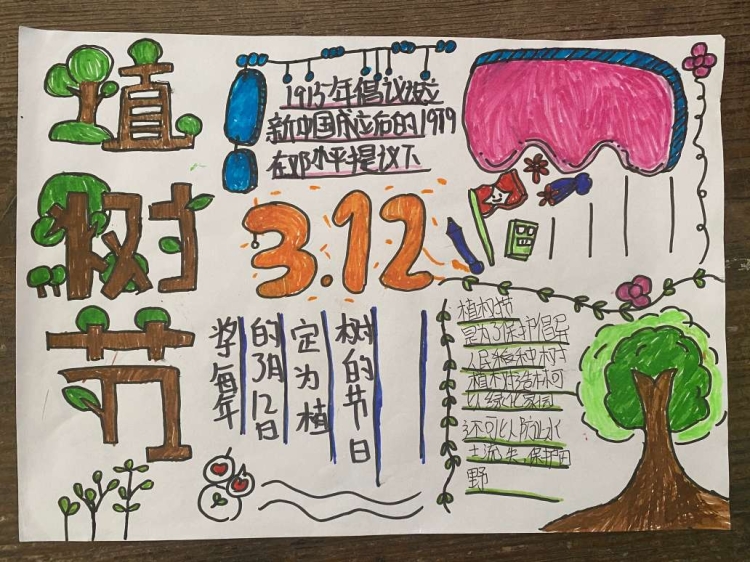 植
树
节
1915年倡议设立
新中国成立后的1979
在邓小平提议下
3.12
学每年
的3月12日
定为植
树的节日
植树节
是为了保护倡导
人民种树
植树造林可
以绿化家园
还可以防止水
土流失,保护田
野